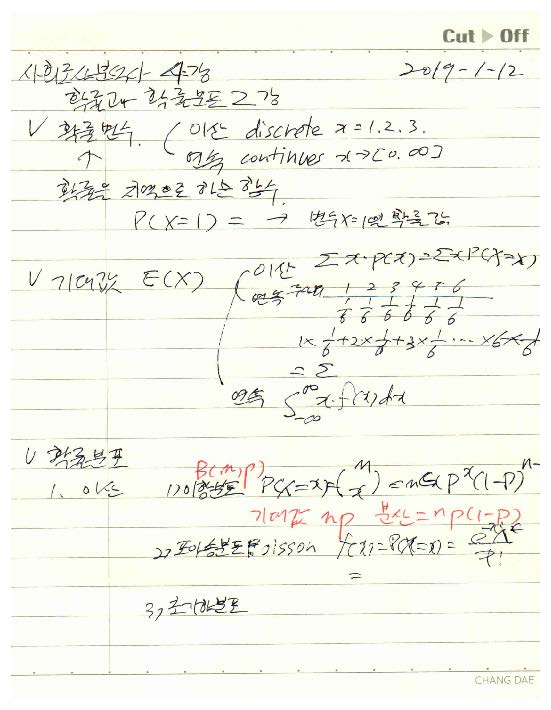 Cut ▷ Off
사회조사분석사 4강 2019-1-12
확률과 확률분포 2강
V 확률변수. ( 이산 discrete x=1.2.3.
↑ 연속 continues x→[0.∞]
확률은 치역으로 하는 함수.
P(X=1) = → 변수 X=1인 확률값
V 기대값 E(X) ( 이산 Σx·p(x)=ΣxP(X=x)
1 2 3 4 5 6
1/6 1/6 1/6 1/6 1/6 1/6
1×1/6+2×1/6+3×1/6 ... ×6×1/6
= Σ
연속 ∫-∞^∞ x·f(x)dx
V 확률분포
B(n,p)
1. 이산 1) 이항분포 P(X=x)=(n x) = nCx p^x(1-p)^n-
기대값 np 분산=np(1-p)
2, 포아송분포 Poisson f(x)=P(X=x)=
=
3, 초기하분포
CHANG DAE